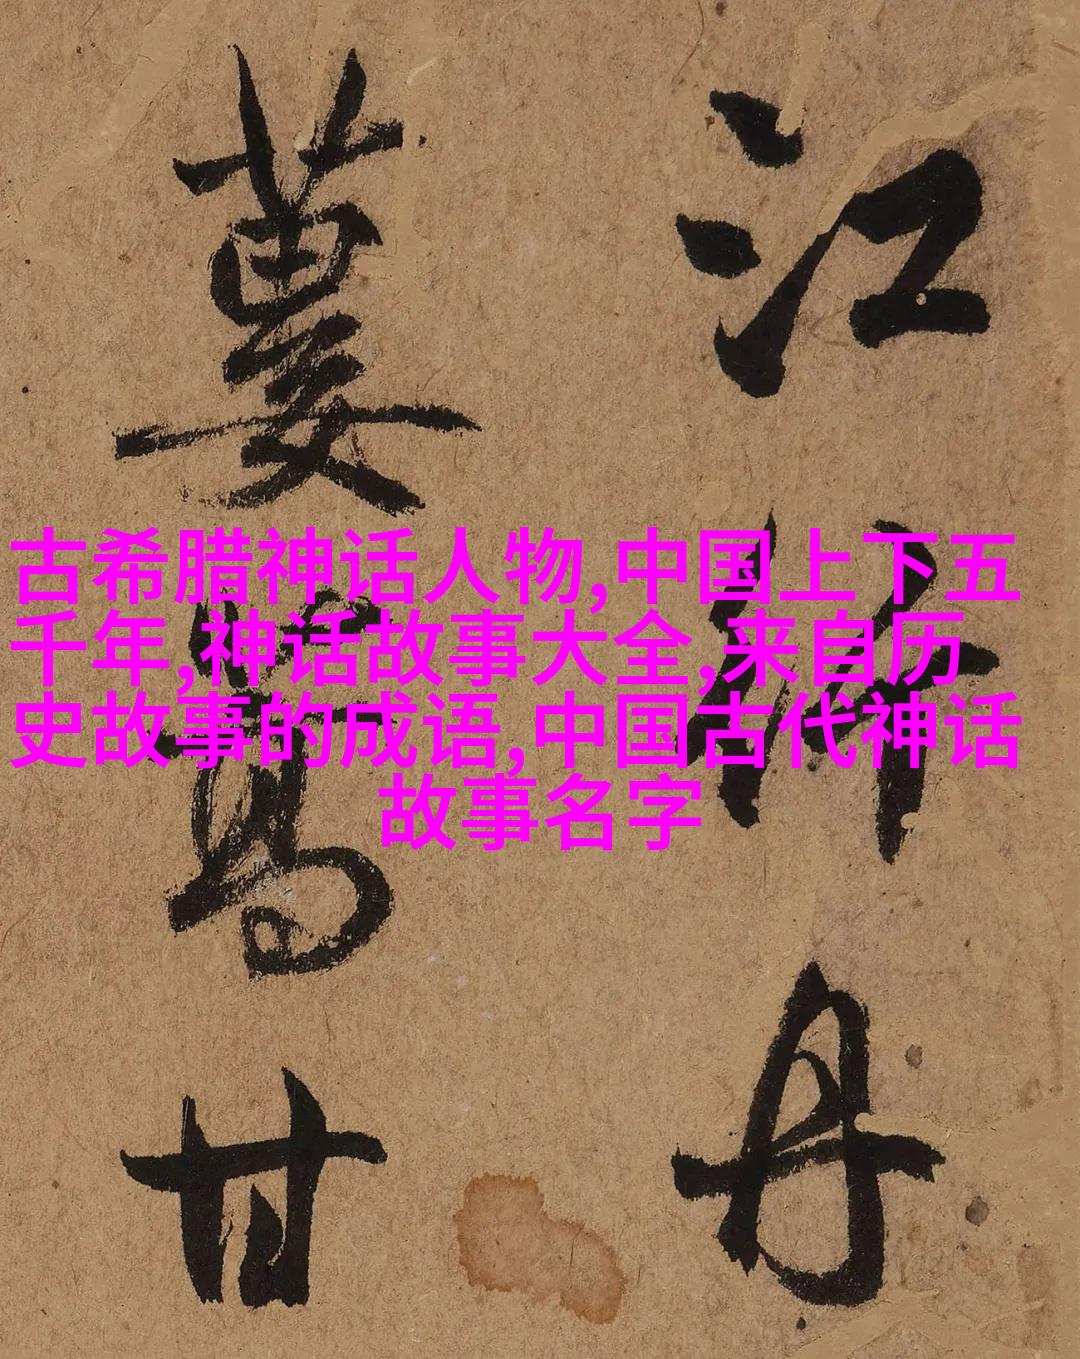 江
丹
甘
古希腊神话人物,中国上下五
千年,神话故事大全,来自历
史故事的成语,中国古代神话
故事名字